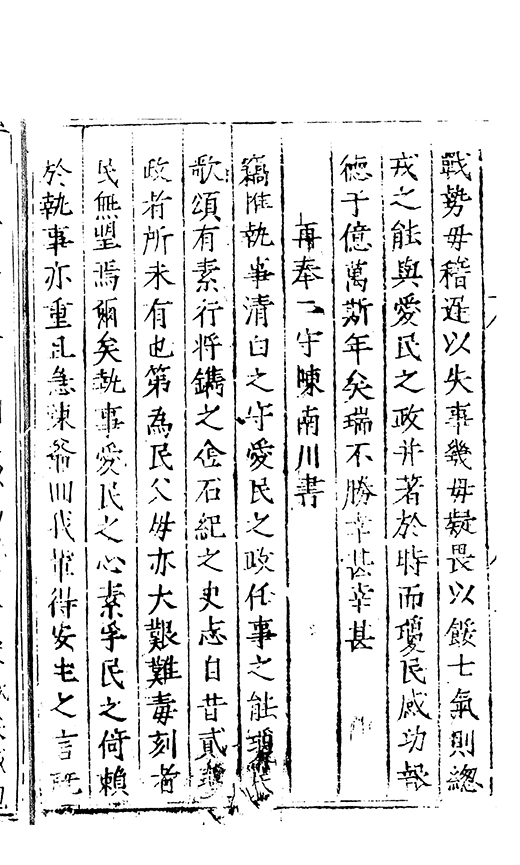 戰勢毋稽遲以失事幾毋疑畏以餒士氣則總
戎之能與愛民之政并著於時而瓊民感功報
德于億萬斯年矣瑞不勝幸甚幸甚
再奉二守陳南川書
竊惟執事清白之守愛民之政任事之能
歌頌有素行將鐫之金石紀之史志自昔貳
政者所未有也第為民父母亦大艱難毒刻者
民無望焉爾矣執事愛民之心素孚民之倚賴
於執事亦重且急陳爺回代能得安屯之言